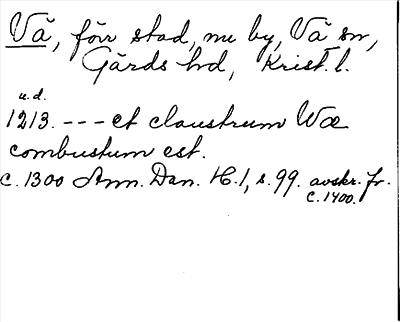 Vä, förr stad, nu by, Vä sn,
Gärds hd, Krist. l.
u.d.
1213. --- et claustrum Wæ
combustum est.
c. 1300 Ann. Dan. H. 1, s. 99. avskr. fr.
c. 1400.